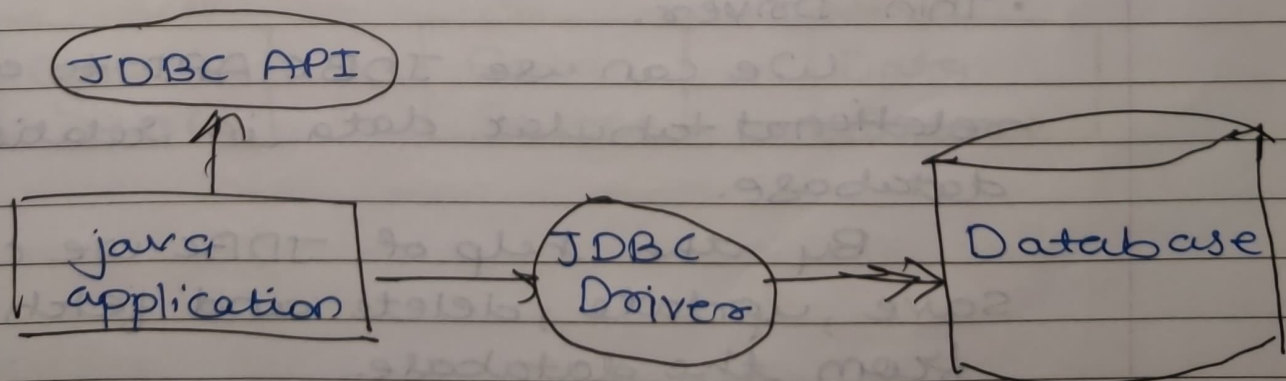 JDBC API
java
application
JDBC
Driver
Database